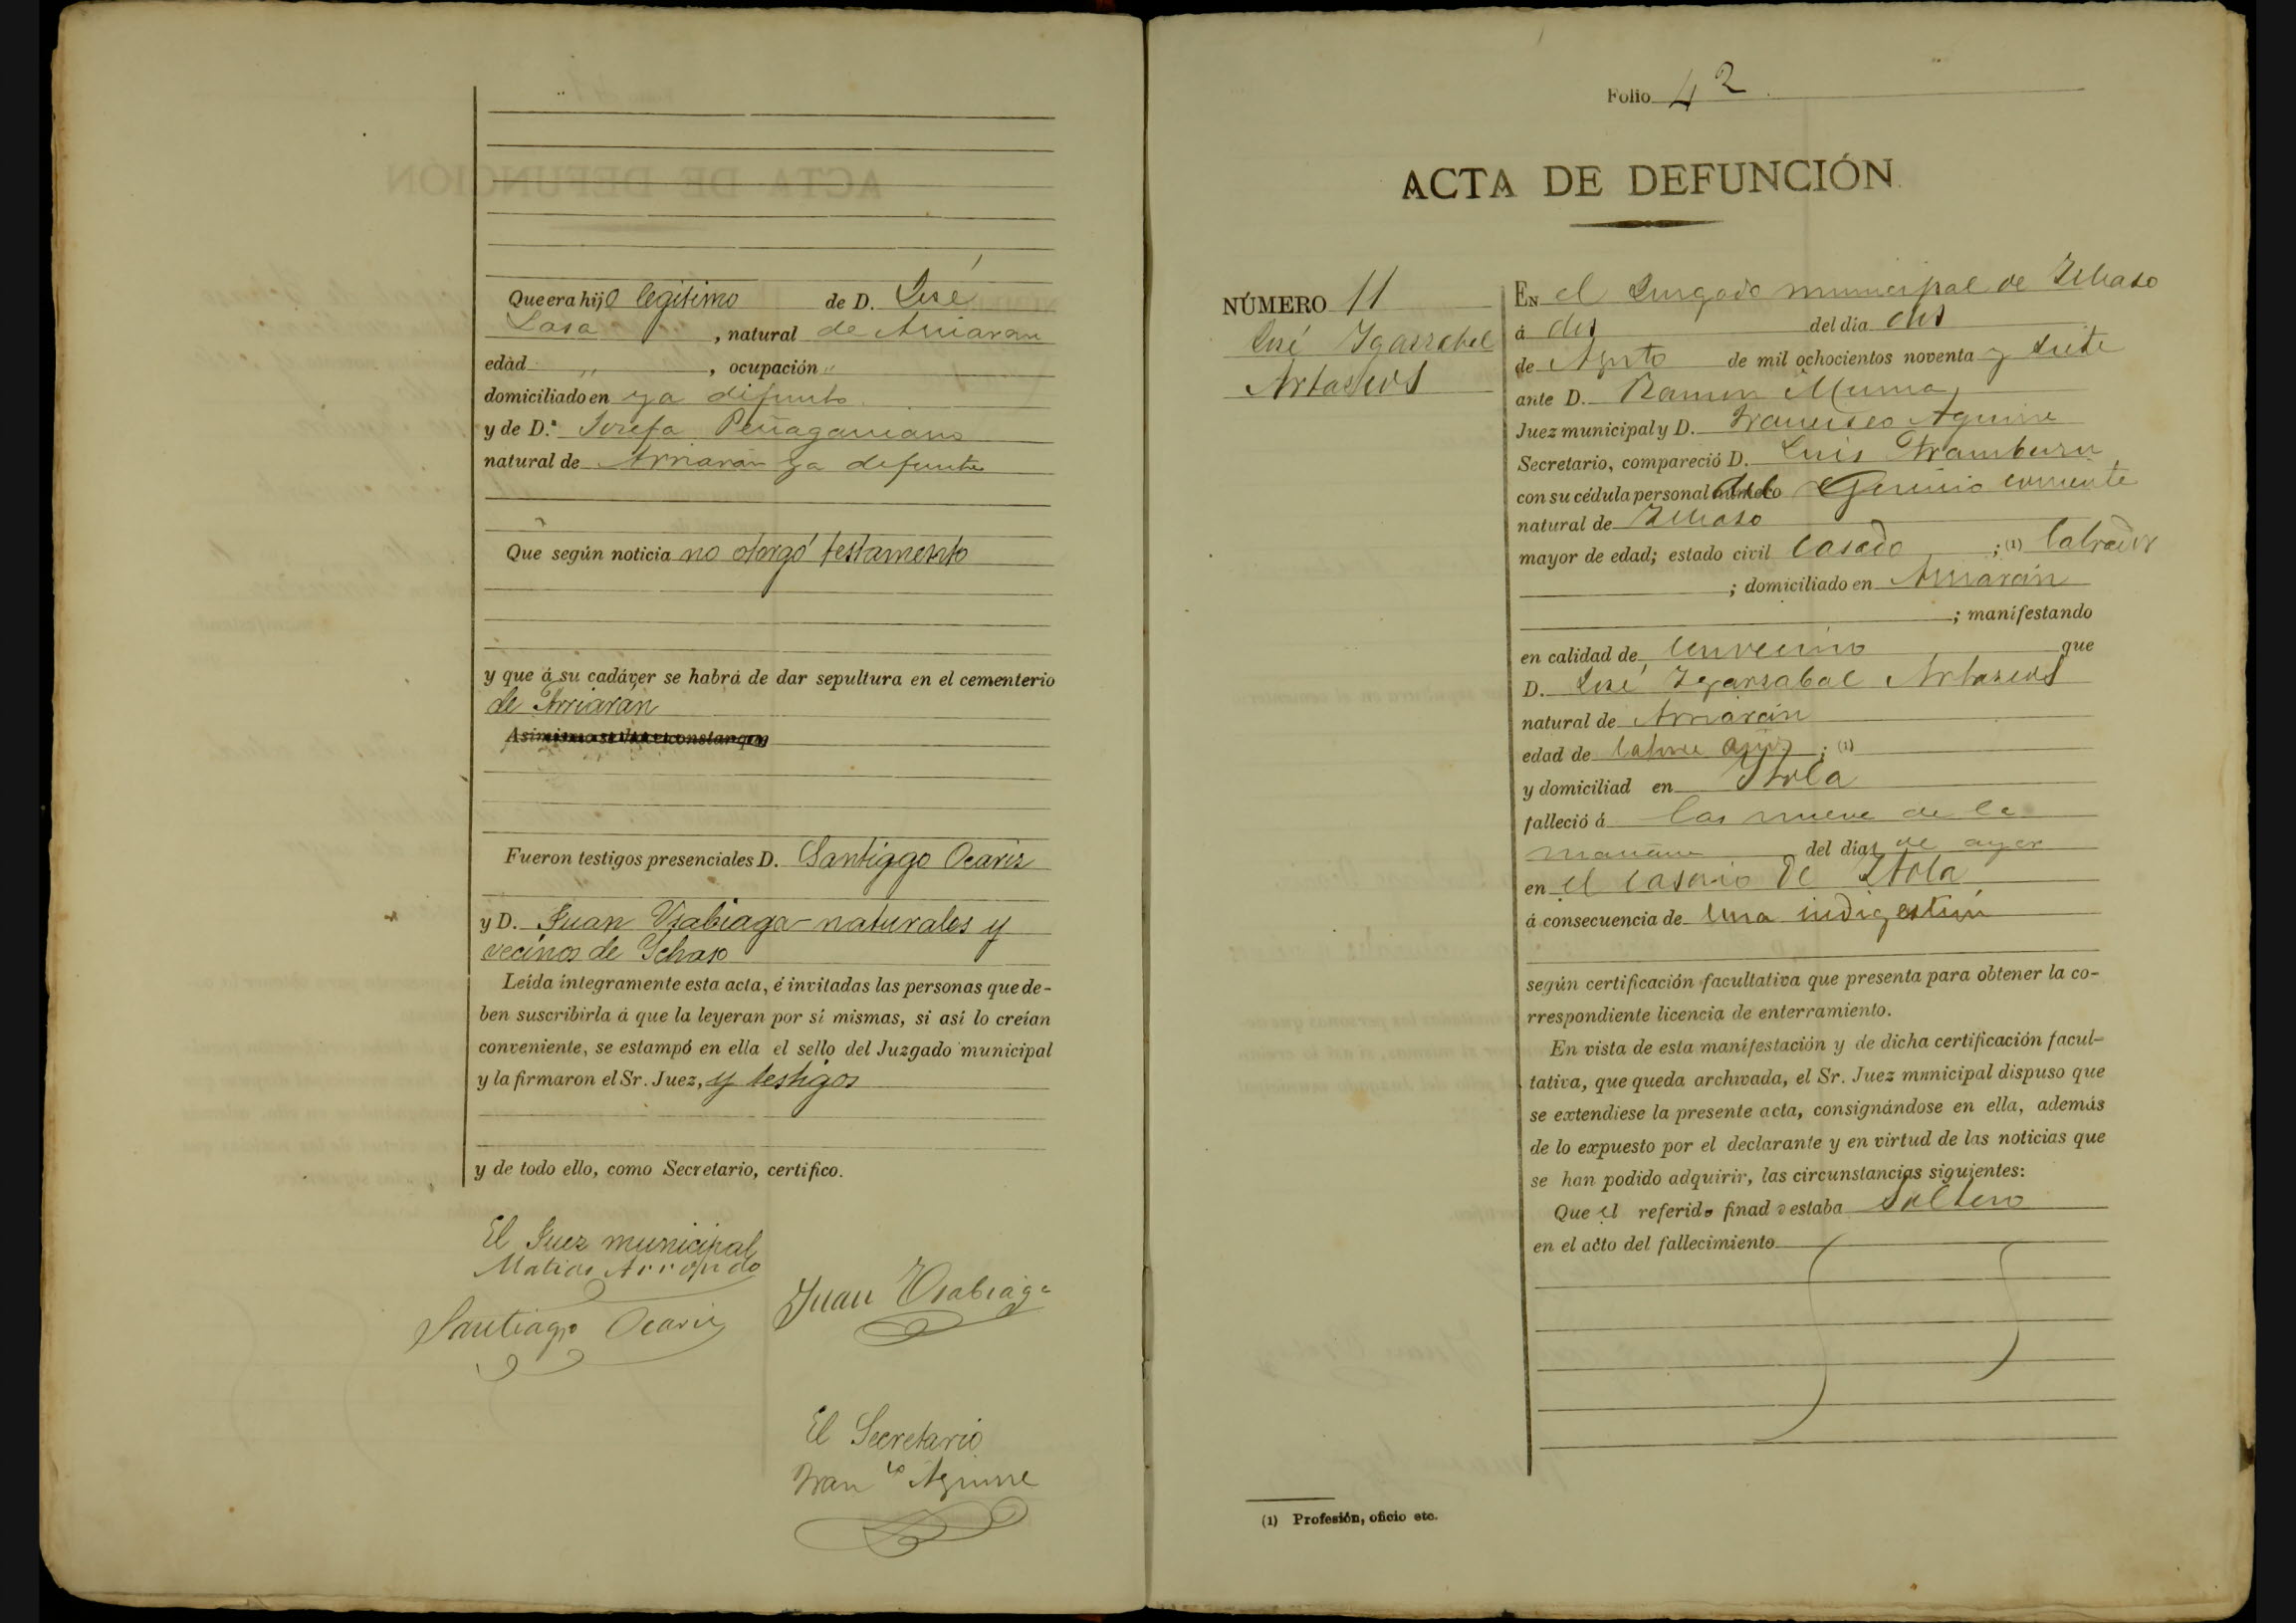 Que era hijo legítimo de D. José
Lasa, natural de Arriaran
edad „, ocupación „
domiciliado en ya difunto
y de D.ª Josefa Peñagaricano
natural de Arriarán ya difunta
Que según noticia no otorgó testamento
y que á su cadáver se habrá de dar sepultura en el cementerio
de Arriarán
Asimismo se hace constar que
Fueron testigos presenciales D. Santiago Ocariz
y D. Juan Usabiaga naturales y
vecinos de Ychaso
Leída íntegramente esta acta, é invitadas las personas que de-
ben suscribirla á que la leyeran por sí mismas, si así lo creían
conveniente, se estampó en ella el sello del Juzgado municipal
y la firmaron el Sr. Juez, y testigos
y de todo ello, como Secretario, certifico.
El Juez municipal
Matias Arrondo
Juan Usabiaga
Santiago Ocariz
El Secretario
Fran co Aguirre
Folio 42
ACTA DE DEFUNCIÓN
NÚMERO 11
José Ygarzabal
En el Juzgado municipal de Ichaso
á dos del dia dos
de Agosto de mil ochocientos noventa y siete
ante D. Ramon
Juez municipal y D. Francisco Aguirre
Secretario, compareció D. Luis Aramburu
con su cédula personal del corriente
natural de Ichaso
mayor de edad; estado civil casado; (1) labrador
; domiciliado en Arriarán
; manifestando
en calidad de convecino que
D. José Ygarzabal
natural de Arriarán
edad de catorce años; (1)
y domiciliad en
falleció á las nueve de la
mañana del día de ayer
en el caserio de
á consecuencia de una indigestión
según certificación facultativa que presenta para obtener la co-
rrespondiente licencia de enterramiento.
En vista de esta manifestación y de dicha certificación facul-
tativa, que queda archivada, el Sr. Juez municipal dispuso que
se extendiese la presente acta, consignándose en ella, además
de lo expuesto por el declarante y en virtud de las noticias que
se han podido adquirir, las circunstancias siguientes:
Que el referido finado estaba soltero
en el acto del fallecimiento
(1) Profesión, oficio etc.